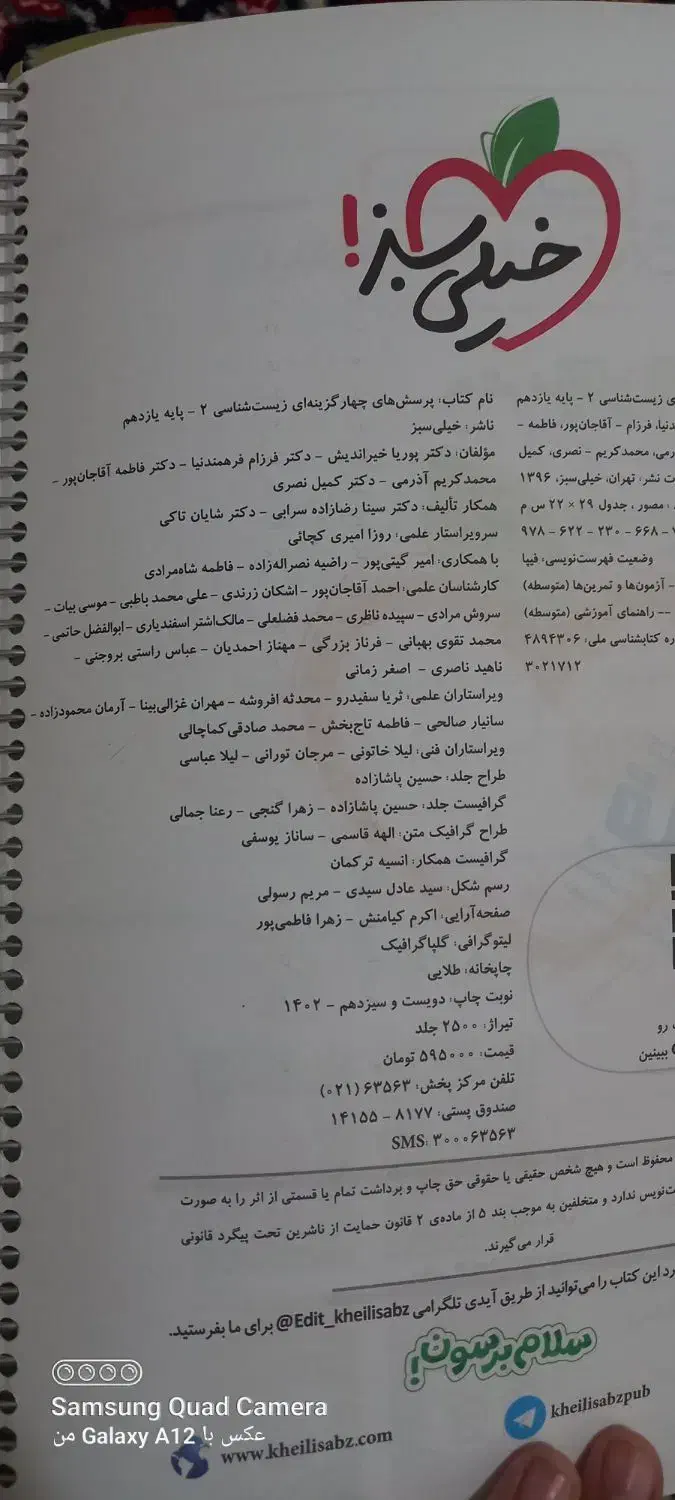 خیلی سبز!
ی زیست‌شناسی ۲ - پایه یازدهم
دنیا، فرزام - آقاجان‌پور، فاطمه -
رمی، محمدکریم - نصری، کمیل
ت نشر: تهران، خیلی‌سبز، ۱۳۹۶
، مصور ، جدول ۲۹ × ۲۲ س م
۹۷۸ - ۶۲۲ - ۲۳۰ - ۶۶۸ -
وضعیت فهرست‌نویسی: فیپا
- آزمون‌ها و تمرین‌ها (متوسطه)
-- راهنمای آموزشی (متوسطه)
ره کتابشناسی ملی: ۴۸۹۴۳۰۶
۳۰۲۱۷۱۲
نام کتاب: پرسش‌های چهارگزینه‌ای زیست‌شناسی ۲ - پایه یازدهم
ناشر: خیلی‌سبز
مؤلفان: دکتر پوریا خیراندیش - دکتر فرزام فرهمندنیا - دکتر فاطمه آقاجان‌پور -
محمدکریم آذرمی - دکتر کمیل نصری
همکار تألیف: دکتر سینا رضازاده سرابی - دکتر شایان تاکی
سرویراستار علمی: روزا امیری کچائی
با همکاری: امیر گیتی‌پور - راضیه نصراله‌زاده - فاطمه شاه‌مرادی
کارشناسان علمی: احمد آقاجان‌پور - اشکان زرندی - علی محمد باطبی - موسی بیات -
سروش مرادی - سپیده ناظری - محمد فضلعلی - مالک‌اشتر اسفندیاری - ابوالفضل حاتمی -
محمد تقوی بهبانی - فرناز بزرگی - مهناز احمدیان - عباس راستی بروجنی -
ناهید ناصری - اصغر زمانی
ویراستاران علمی: ثریا سفیدرو - محدثه افروشه - مهران غزالی‌بینا - آرمان محمودزاده -
سانیار صالحی - فاطمه تاج‌بخش - محمد صادقی‌کماچالی
ویراستاران فنی: لیلا خاتونی - مرجان تورانی - لیلا عباسی
طراح جلد: حسین پاشازاده
گرافیست جلد: حسین پاشازاده - زهرا گنجی - رعنا جمالی
طراح گرافیک متن: الهه قاسمی - ساناز یوسفی
گرافیست همکار: انسیه ترکمان
رسم شکل: سید عادل سیدی - مریم رسولی
صفحه‌آرایی: اکرم کیامنش - زهرا فاطمی‌پور
لیتوگرافی: گلپاگرافیک
چاپخانه: طلایی
نوبت چاپ: دویست و سیزدهم - ۱۴۰۲
تیراژ: ۲۵۰۰ جلد
قیمت: ۵۹۵۰۰۰ تومان
تلفن مرکز پخش: ۶۳۵۶۳ (۰۲۱)
صندوق پستی: ۸۱۷۷ - ۱۴۱۵۵
SMS: ۳۰۰۰۶۳۵۶۳
رو
ببینین
محفوظ است و هیچ شخص حقیقی یا حقوقی حق چاپ و برداشت تمام یا قسمتی از اثر را به صورت
ت‌نویس ندارد و متخلفین به موجب بند ۵ از ماده‌ی ۲ قانون حمایت از ناشرین تحت پیگرد قانونی
قرار می‌گیرند.
رد این کتاب را می‌توانید از طریق آیدی تلگرامی @Edit_kheilisabz برای ما بفرستید.
سلام برسون!
kheilisabzpub
www.kheilisabz.com
Samsung Quad Camera
عکس با Galaxy A12 من